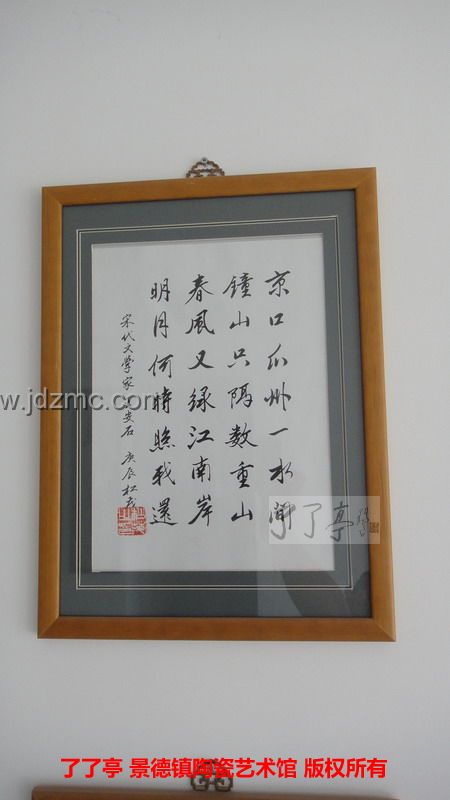 京口瓜州一水間
鐘山只隔數重山
春風又綠江南岸
明月何時照我還
宋代文學家王安石 庚辰松
www.jdzmc.com
了了亭
了了亭 景德镇陶瓷艺术馆 版权所有